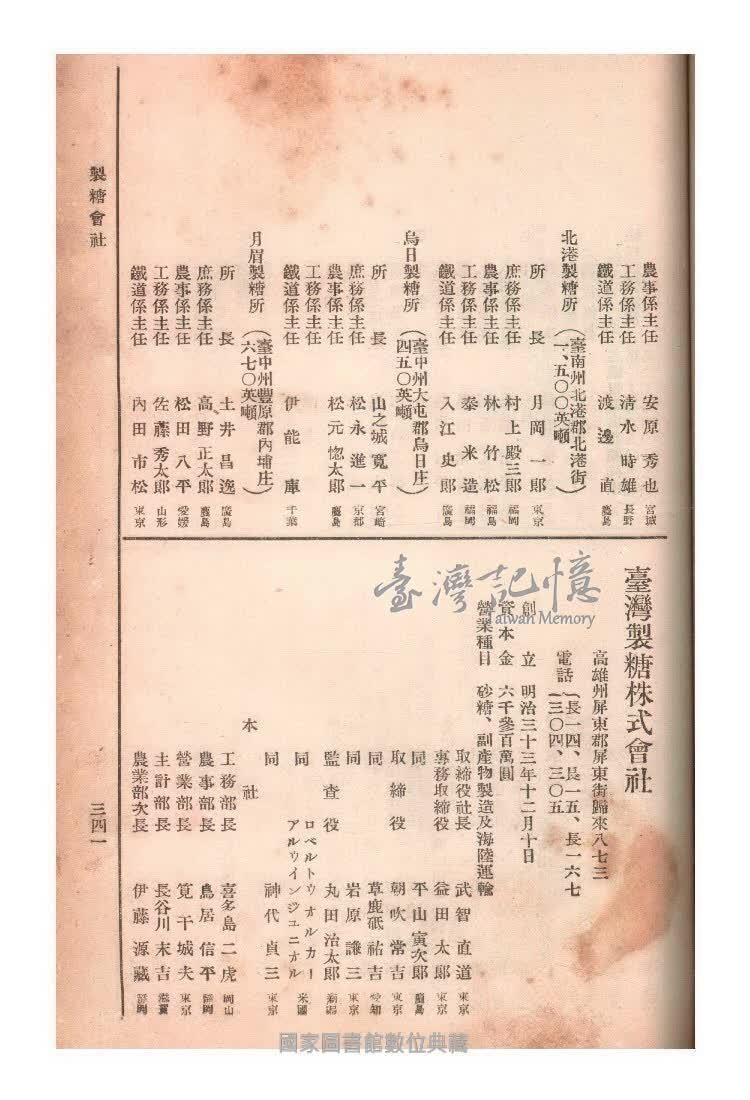 製糖會社
農事係主任 安原秀也 宮城
工務係主任 清水時雄 長野
鐵道係主任 渡邊直 鹿島
北港製糖所 (臺南州北港郡北港街)
一、五〇〇英噸
所長 月岡一郎 東京
庶務係主任 村上殿三郎 福岡
農事係主任 林竹松 福島
工務係主任 泰米造 福岡
鐵道係主任 入江史郎 廣島
烏日製糖所 (臺中州大屯郡烏日庄)
四五〇英噸
所長 山之城寛平 宮崎
庶務係主任 松永進一 京都
農事係主任 松元惣太郎 鹿島
工務係主任
鐵道係主任 伊能庫 千葉
月眉製糖所 (臺中州豐原郡內埔庄)
六七〇英噸
所長 土井昌逸 廣島
庶務係主任 高野正太郎 鹿島
農事係主任 松田八平 愛媛
工務係主任 佐藤秀太郎 山形
鐵道係主任 內田市松 東京
臺灣製糖株式會社
高雄州屏東郡屏東街歸來八七三
電話 (長一四、長一五、長一六七
三〇四、三〇五
創立 明治三十三年十二月十日
資本金 六千參百萬圓
營業種目 砂糖、副產物製造及海陸運輸
取締役社長 武智直道 東京
專務取締役 益田太郎 東京
同 平山寅次郎 鹿島
取締役 朝吹常吉 東京
同 草鹿砥祐吉 愛知
同 岩原謙三 東京
監查役 丸田治太郎 新潟
同 ロベルトウオルカーアルウインジユニオル 米國
同 神代貞三 東京
本社
工務部長 喜多島二虎 岡山
農事部長 鳥居信平 靜岡
營業部長 筧干城夫 東京
主計部長 長谷川末吉 滋賀
農業部次長 伊藤源藏 靜岡
三四一
臺灣記憶
Taiwan Memory
國家圖書館數位典藏